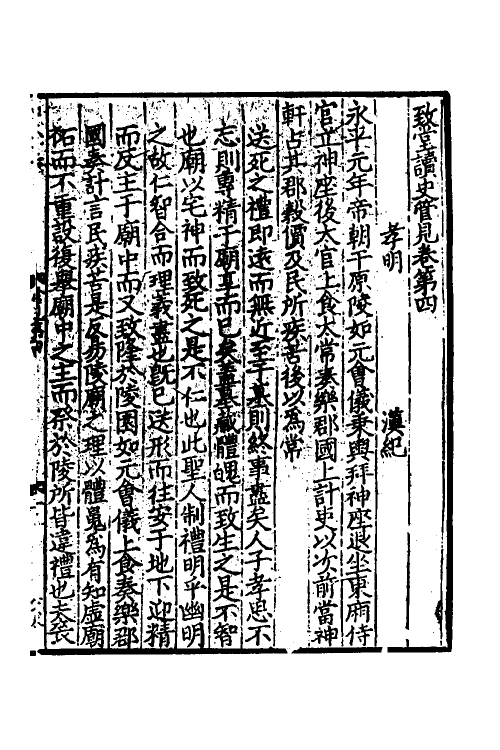 致堂讀史管見卷第四
孝明　漢紀
永平元年帝朝于原陵如元會儀乘輿拜神座退坐東廂侍
官立神座後太官上食太常奏樂郡國上計吏以次前當神
軒占其郡穀價及民所疾苦後以爲常
送死之禮即遠而無近至于墓則終事盡矣人子孝思不
忘則專精于廟享而已矣蓋墓藏體魄而致生之是不智
也廟以宅神而致死之是不仁也此聖人制禮明乎幽明
之故仁智合而理義盡也旣已送形而往安于地下迎精
而反主于廟中而又致隆於陵園如元會儀上食奏樂郡
國奏計言民疾苦是反易陵廟之理以體魄爲有知虛廟
祏而不重設復舉廟中之主而祭於陵所皆違禮也夫喪